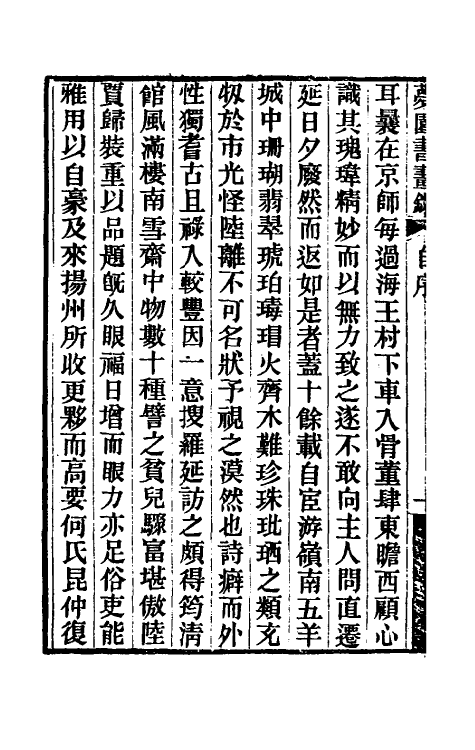 夢園書畫錄 自序 一
耳曩在京師每過海王村下車入骨董肆東瞻西顧心
識其瑰瑋精妙而以無力致之遂不敢向主人問直遷
延日夕廢然而返如是者蓋十餘載自宦游嶺南五羊
城中珊瑚翡翠琥珀瑇瑁火齊木難珍珠玭珬之類充
牣於市光怪陸離不可名狀予視之漠然也詩癖而外
性獨耆古且祿入較豐因一意搜羅延訪之頗得筠清
館風滿樓南雪齋中物數十種譬之貧兒驟富堪傲陸
賈歸裝重以品題旣久眼福日增而眼力亦足俗吏能
雅用以自豪及來揚州所收更夥而高要何氏昆仲復